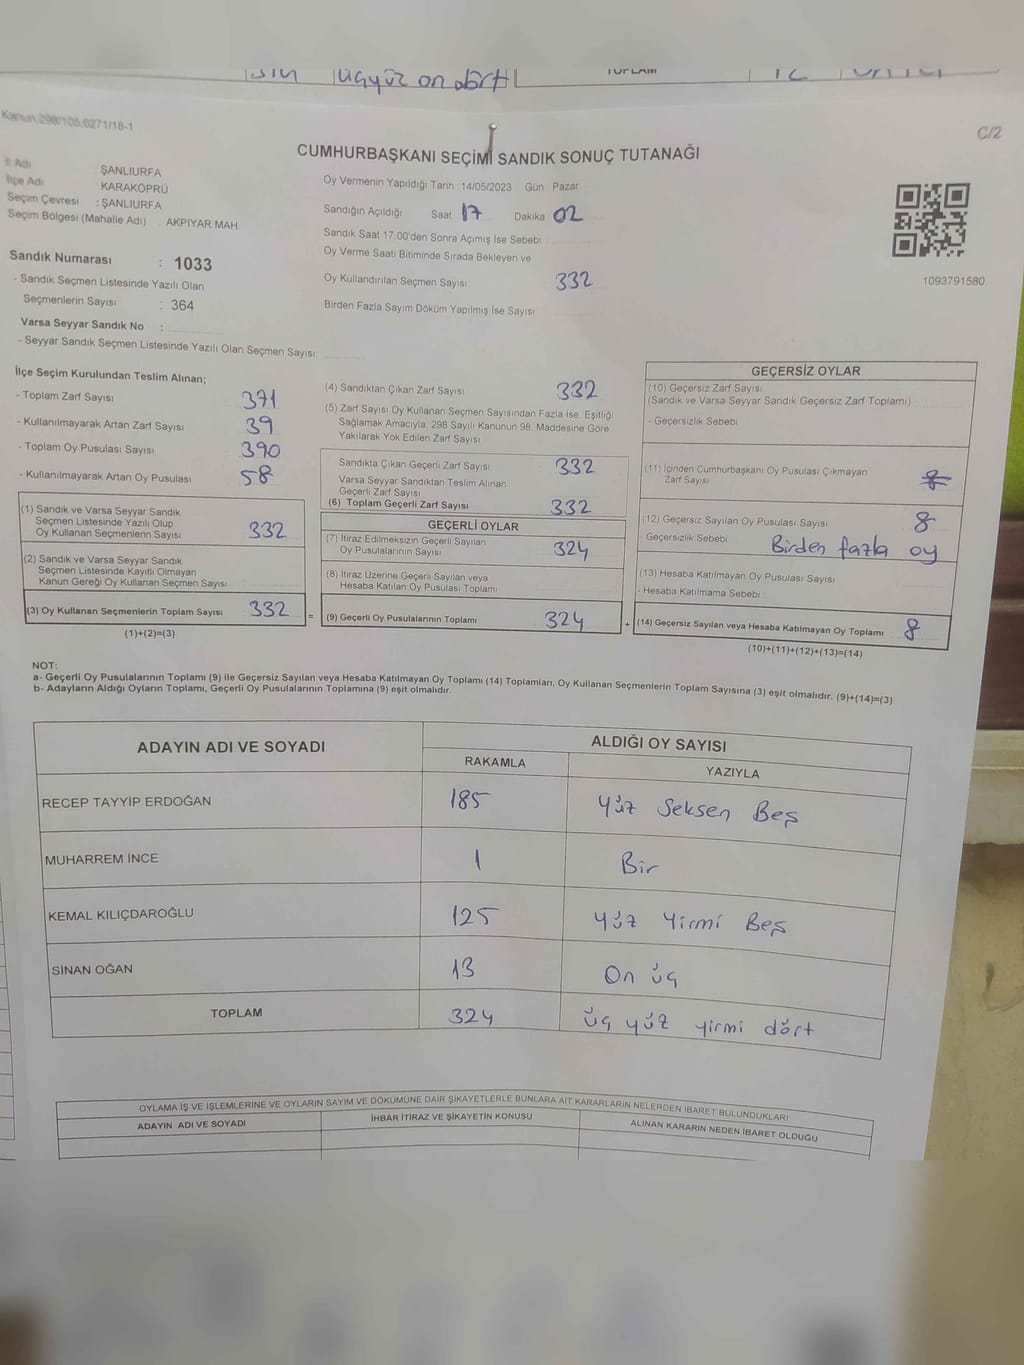 üçyüz on dört
Kanun:298/105;6271/18-1
C/2
CUMHURBAŞKANI SEÇİMİ SANDIK SONUÇ TUTANAĞI
İl Adı : ŞANLIURFA
İlçe Adı : KARAKÖPRÜ
Seçim Çevresi : ŞANLIURFA
Seçim Bölgesi (Mahalle Adı) . AKPIYAR MAH.
Sandık Numarası : 1033
- Sandık Seçmen Listesinde Yazılı Olan
Seçmenlerin Sayısı : 364
Varsa Seyyar Sandık No :
- Seyyar Sandık Seçmen Listesinde Yazılı Olan Seçmen Sayısı:
Oy Vermenin Yapıldığı Tarih :14/05/2023 Gün Pazar
Sandığın Açıldığı Saat 17 Dakika 02
Sandık Saat 17:00'den Sonra Açımış İse Sebebi
Oy Verme Saati Bitiminde Sırada Bekleyen ve
Oy Kullandırılan Seçmen Sayısı 332
Birden Fazla Sayım Döküm Yapılmış İse Sayısı
1093791580
İlçe Seçim Kurulundan Teslim Alınan;
- Toplam Zarf Sayısı 371
- Kullanılmayarak Artan Zarf Sayısı 39
- Toplam Oy Pusulası Sayısı 390
- Kullanılmayarak Artan Oy Pusulası 58
(1) Sandık ve Varsa Seyyar Sandık
Seçmen Listesinde Yazılı Olup
Oy Kullanan Seçmenlerin Sayısı 332
(2) Sandık ve Varsa Seyyar Sandık
Seçmen Listesinde Kayıtlı Olmayan
Kanun Gereği Oy Kullanan Seçmen Sayısı
(3) Oy Kullanan Seçmenlerin Toplam Sayısı 332 =
(1)+(2)=(3)
(4) Sandıktan Çıkan Zarf Sayısı 332
(5) Zarf Sayısı Oy Kullanan Seçmen Sayısından Fazla İse, Eşitliği
Sağlamak Amacıyla; 298 Sayılı Kanunun 98. Maddesine Göre
Yakılarak Yok Edilen Zarf Sayısı
Sandıkta Çıkan Geçerli Zarf Sayısı 332
Varsa Seyyar Sandıktan Teslim Alınan
Geçerli Zarf Sayısı
(6) Toplam Geçerli Zarf Sayısı 332
GEÇERLİ OYLAR
(7) İtiraz Edilmeksizin Geçerli Sayılan
Oy Pusulalarının Sayısı 324
(8) İtiraz Üzerine Geçerli Sayılan veya
Hesaba Katılan Oy Pusulası Toplamı
(9) Geçerli Oy Pusulalarının Toplamı 324 +
GEÇERSİZ OYLAR
(10) Geçersiz Zarf Sayısı
(Sandık ve Varsa Seyyar Sandık Geçersiz Zarf Toplamı)
- Geçersizlik Sebebi
(11) İçinden Cumhurbaşkanı Oy Pusulası Çıkmayan
Zarf Sayısı
(12) Geçersiz Sayılan Oy Pusulası Sayısı 8
- Geçersizlik Sebebi Birden fazla oy
(13) Hesaba Katılmayan Oy Pusulası Sayısı
- Hesaba Katılmama Sebebi
(14) Geçersiz Sayılan veya Hesaba Katılmayan Oy Toplamı 8
(10)+(11)+(12)+(13)=(14)
NOT:
a- Geçerli Oy Pusulalarının Toplamı (9) ile Geçersiz Sayılan veya Hesaba Katılmayan Oy Toplamı (14) Toplamları, Oy Kullanan Seçmenlerin Toplam Sayısına (3) eşit olmalıdır. (9)+(14)=(3)
b- Adayların Aldığı Oyların Toplamı, Geçerli Oy Pusulalarının Toplamına (9) eşit olmalıdır.
ADAYIN ADI VE SOYADI ALDIĞI OY SAYISI
RAKAMLA YAZIYLA
RECEP TAYYİP ERDOĞAN 185 Yüz Seksen Beş
MUHARREM İNCE 1 Bir
KEMAL KILIÇDAROĞLU 125 Yüz Yirmi Beş
SİNAN OĞAN 13 On üç
TOPLAM 324 üç yüz yirmi dört
OYLAMA İŞ VE İŞLEMLERİNE VE OYLARIN SAYIM VE DÖKÜMÜNE DAİR ŞİKAYETLERLE BUNLARA AİT KARARLARIN NELERDEN İBARET BULUNDUKLARI
ADAYIN ADI VE SOYADI İHBAR İTİRAZ VE ŞİKAYETİN KONUSU ALINAN KARARIN NEDEN İBARET OLDUĞU